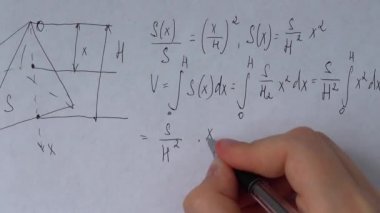 O
x
H
S
x
S(x)/S = (x/H)², S(x) = S/H² x²
V = ∫₀ᴴ S(x)dx = ∫₀ᴴ S/H₂ x²dx = S/H² ∫₀ᴴ x²dx
= S/H² · x